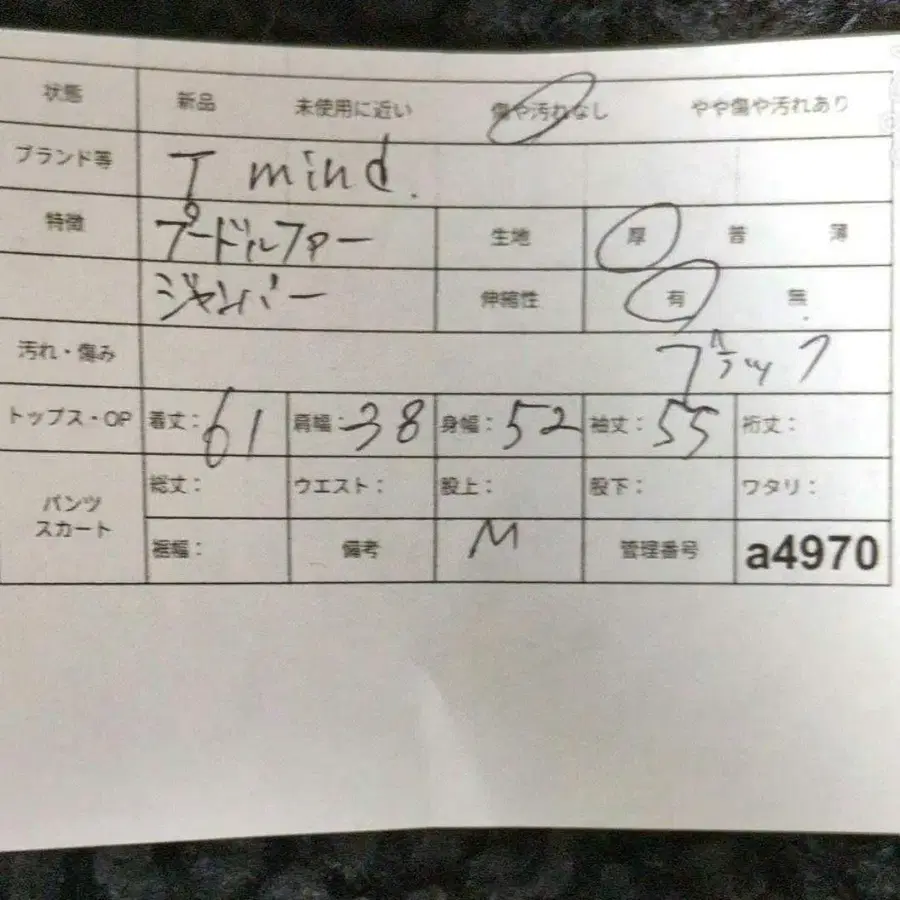 状態 新品 未使用に近い 傷や汚れなし やや傷や汚れあり
ブランド等 T mind.
特徴 プードルファー 生地 厚 普 薄
ジャンパー 伸縮性 有 無
汚れ・傷み ブラック
トップス・OP 着丈: 61 肩幅: 38 身幅: 52 袖丈: 55 裄丈:
パンツ スカート 総丈: ウエスト: 股上: 股下: ワタリ:
裾幅: 備考 M 管理番号 a4970